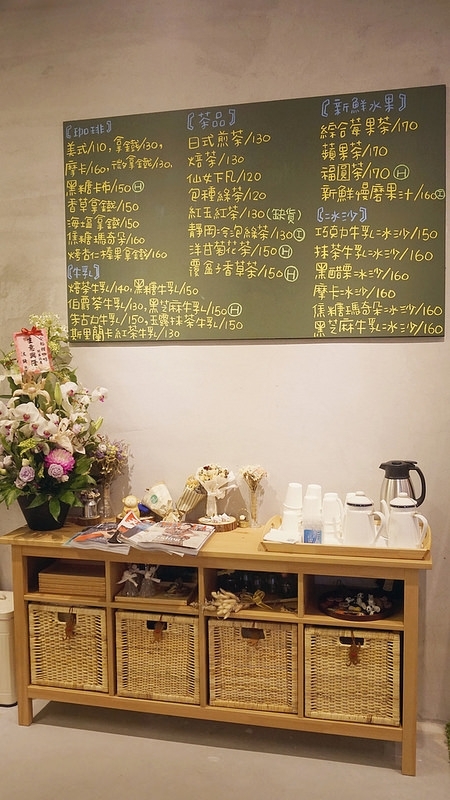 〖咖啡〗
美式/110, 拿鐵/130,
摩卡/160, 微拿鐵/130,
黑糖卡布/150Ⓗ
香草拿鐵/150
海鹽拿鐵/150
焦糖瑪奇朵/160
烤杏仁榛果拿鐵/160
〖牛乳〗
焙茶牛乳/140, 黑糖牛乳/150
伯爵茶牛乳/130, 黑芝麻牛乳/150Ⓗ
巧克力牛乳/150, 玉露抹茶牛乳/150
斯里蘭卡紅茶牛乳/130
〖茶品〗
日式煎茶/130
焙茶/130
仙女下凡/120
包種綠茶/120
紅玉紅茶/130(缺貨)
靜岡冷泡綠茶/130Ⓘ
洋甘菊花茶/150Ⓗ
覆盆子香草茶/150Ⓗ
〖新鮮水果〗
綜合莓果茶/170
蘋果茶/170
福圓茶/170Ⓗ
新鮮慢磨果汁/160Ⓘ
〖冰沙〗
巧克力牛乳冰沙/150
抹茶牛乳冰沙/160
黑醋栗冰沙/160
摩卡冰沙/160
焦糖瑪奇朵冰沙/160
黑芝麻牛乳冰沙/160